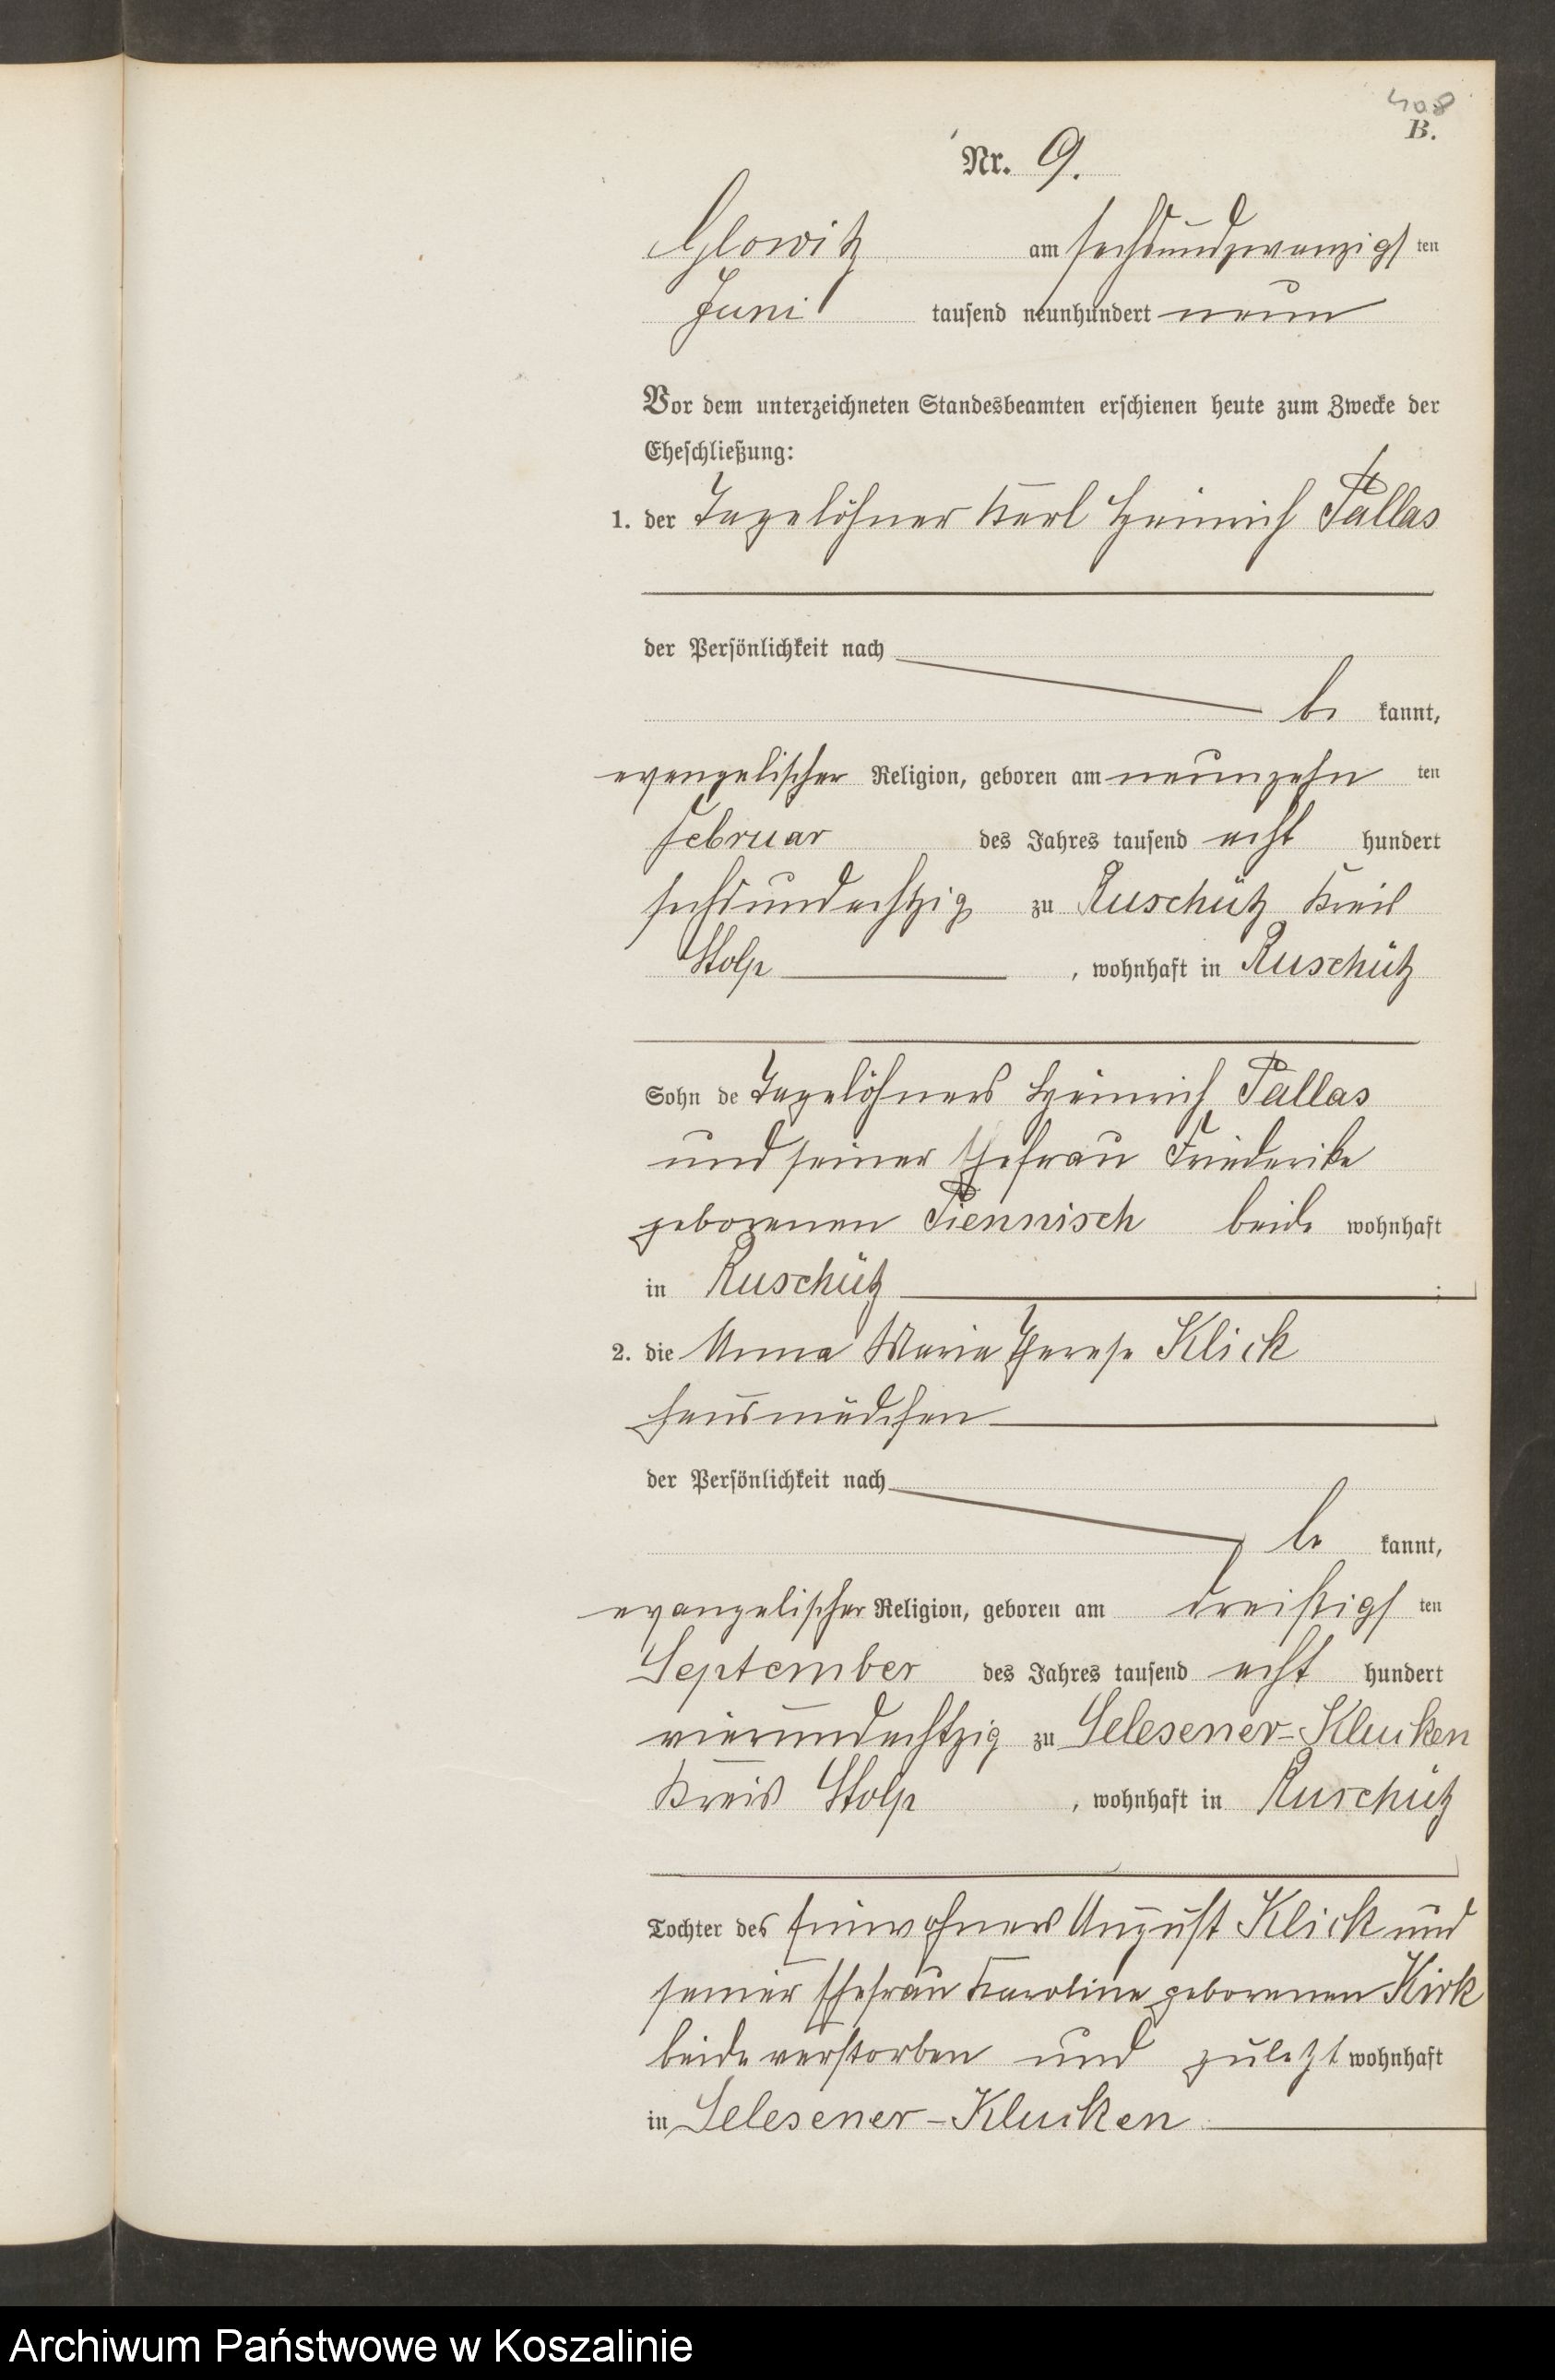 408
B.
Nr. 9.
Glowitz am sechsundzwanzigsten
Juni tausend neunhundert neun
Vor dem unterzeichneten Standesbeamten erschienen heute zum Zwecke der
Eheschließung:
1. der Tagelöhner Karl Heinrich Pallas
der Persönlichkeit nach
be kannt,
evangelischer Religion, geboren am neunzehn ten
Februar des Jahres tausend acht hundert
sechsundachtzig zu Ruschütz Kreis
Stolp, wohnhaft in Ruschütz
Sohn de Tagelöhners Heinrich Pallas
und seiner Ehefrau Friederike
geborenen Piennisch beide wohnhaft
in Ruschütz ;
2. die Anna Maria Therese Klick
Hausmädchen
der Persönlichkeit nach
be kannt,
evangelischer Religion, geboren am dreißigsten
September des Jahres tausend acht hundert
vierundachtzig zu Selesener-Klucken
Kreis Stolp, wohnhaft in Ruschütz
Tochter des Einwohners August Klick und
seiner Ehefrau Karoline geborenen Kirk
beide verstorben und zuletzt wohnhaft
in Selesener-Klucken
Archiwum Państwowe w Koszalinie